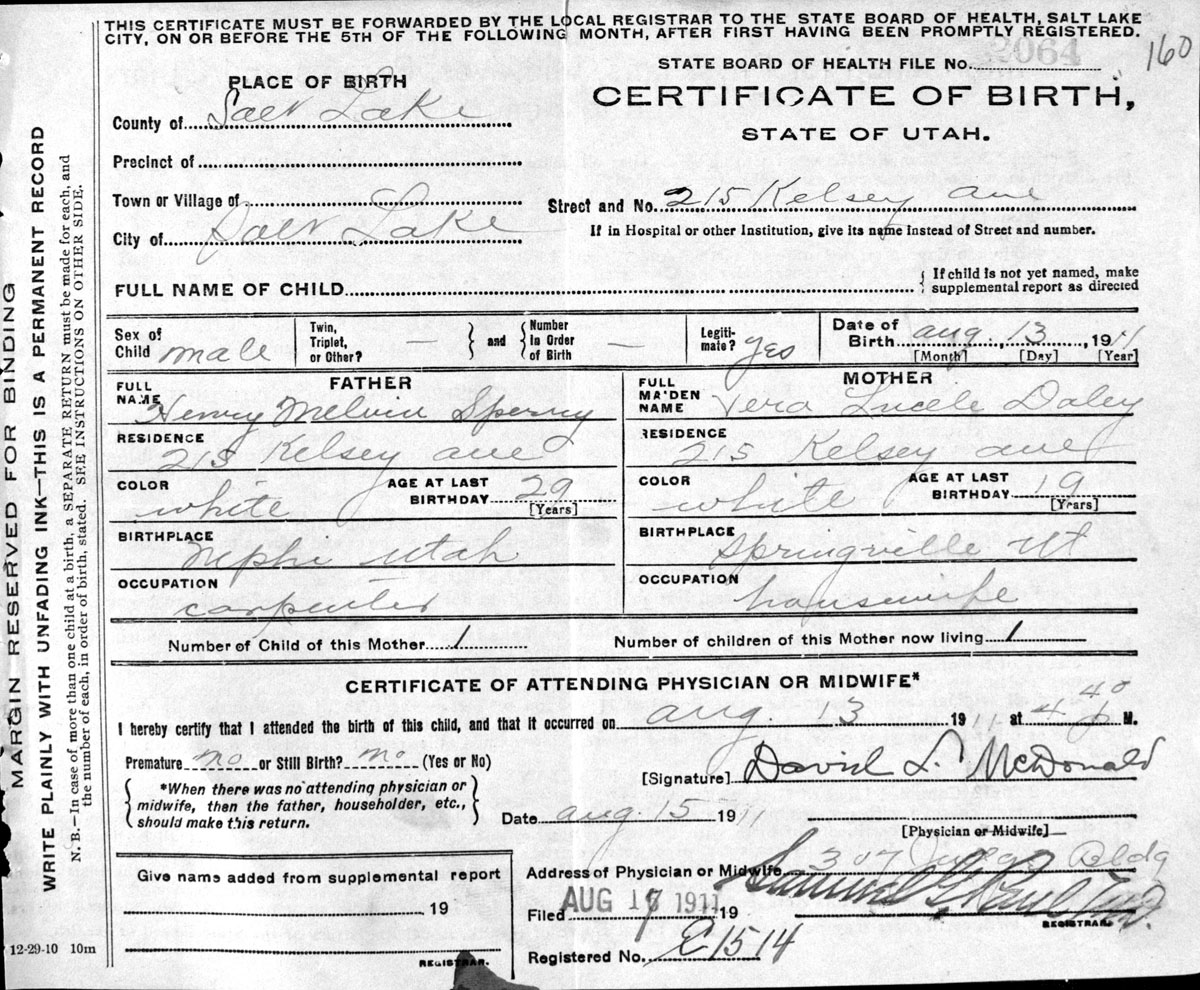 THIS CERTIFICATE MUST BE FORWARDED BY THE LOCAL REGISTRAR TO THE STATE BOARD OF HEALTH, SALT LAKE
CITY, ON OR BEFORE THE 5TH OF THE FOLLOWING MONTH, AFTER FIRST HAVING BEEN PROMPTLY REGISTERED.
160
STATE BOARD OF HEALTH FILE No. 2064
PLACE OF BIRTH
CERTIFICATE OF BIRTH,
STATE OF UTAH.
County of Salt Lake
Precinct of
Town or Village of
Street and No. 215 Kelsey ave
City of Salt Lake
If in Hospital or other Institution, give its name instead of Street and number.
FULL NAME OF CHILD
{ If child is not yet named, make
supplemental report as directed
Sex of
Child male
Twin,
Triplet,
or Other? —
} and {
Number
In Order
of Birth —
Legiti-
mate? yes
Date of
Birth aug, 13, 1911
[Month] [Day] [Year]
FATHER
FULL
NAME Henry Melvin Sperry
MOTHER
FULL
MAIDEN
NAME Vera Lucele Daley
RESIDENCE
215 Kelsey ave
RESIDENCE
215 Kelsey ave
COLOR
white
AGE AT LAST
BIRTHDAY 29
[Years]
COLOR
white
AGE AT LAST
BIRTHDAY 19
[Years]
BIRTHPLACE
Nephi Utah
BIRTHPLACE
Springville Ut
OCCUPATION
carpenter
OCCUPATION
housewife
Number of Child of this Mother 1
Number of children of this Mother now living 1
CERTIFICATE OF ATTENDING PHYSICIAN OR MIDWIFE*
I hereby certify that I attended the birth of this child, and that it occurred on aug. 13 1911 at 4 40 M.
Premature no or Still Birth? no (Yes or No)
[Signature] David L. McDonald
{ *When there was no attending physician or
midwife, then the father, householder, etc.,
should make this return. }
Date aug. 15 1911
[Physician or Midwife]
Address of Physician or Midwife 307 Judge Bldg
Give name added from supplemental report
19
REGISTRAR.
Filed AUG 17 1911 19
Samuel G.
REGISTRAR.
Registered No. C1514
12-29-10 10m
MARGIN RESERVED FOR BINDING
WRITE PLAINLY WITH UNFADING INK—THIS IS A PERMANENT RECORD
N. B.—In case of more than one child at a birth, a SEPARATE RETURN must be made for each, and
the number of each, in order of birth, stated. SEE INSTRUCTIONS ON OTHER SIDE.